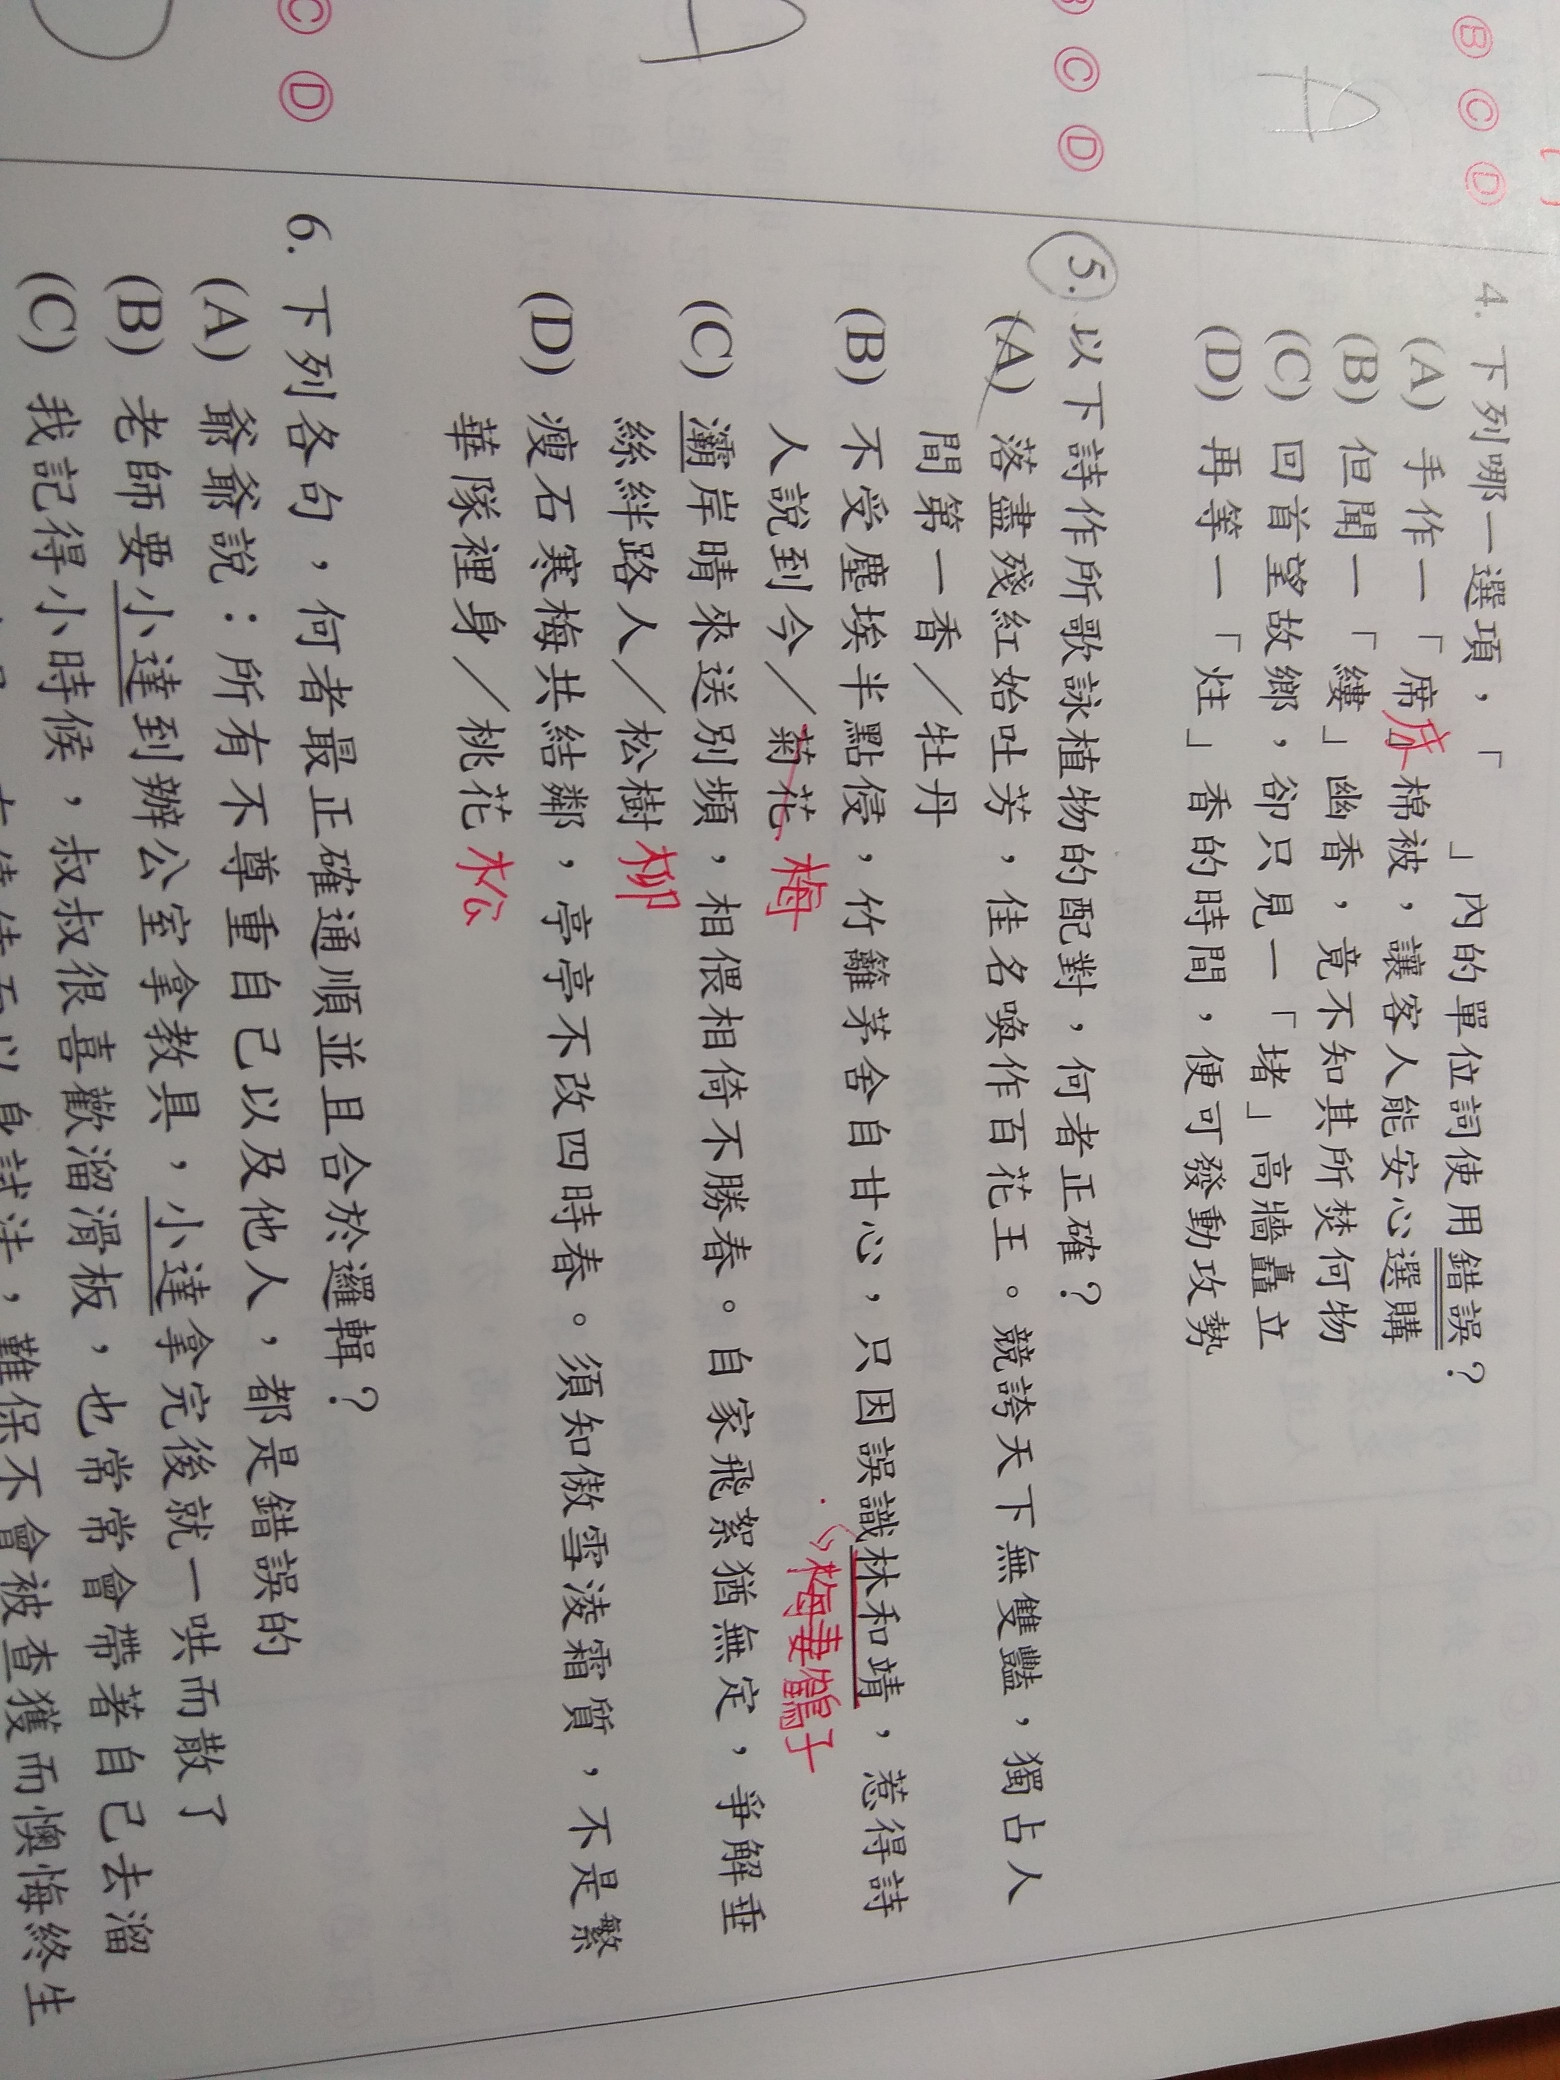 4. 下列哪一選項，「　」內的單位詞使用錯誤？
(A) 手作一「席床」棉被，讓客人能安心選購
(B) 但聞一「縷」幽香，竟不知其所焚何物
(C) 回首望故鄉，卻只見一「堵」高牆矗立
(D) 再等一「炷」香的時間，便可發動攻勢
5. 以下詩作所歌詠植物的配對，何者正確？
(A) 落盡殘紅始吐芳，佳名喚作百花王。競誇天下無雙豔，獨占人
間第一香／牡丹
(B) 不受塵埃半點侵，竹籬茅舍自甘心，只因誤識林和靖，惹得詩
梅妻鶴子
人說到今／菊花 梅
(C) 灞岸晴來送別頻，相偎相倚不勝春。自家飛絮猶無定，爭解垂
絲絆路人／松樹 柳
(D) 瘦石寒梅共結鄰，亭亭不改四時春。須知傲雪淩霜質，不是繁
華隊裡身／桃花 松
6. 下列各句，何者最正確通順並且合於邏輯？
(A) 爺爺說：所有不尊重自己以及他人，都是錯誤的
(B) 老師要小達到辦公室拿教具，小達拿完後就一哄而散了
(C) 我記得小時候，叔叔很喜歡溜滑板，也常常會帶著自己去溜
以身試法，難保不會被查獲而懊悔終生
B C D
A
B C D
A
C D